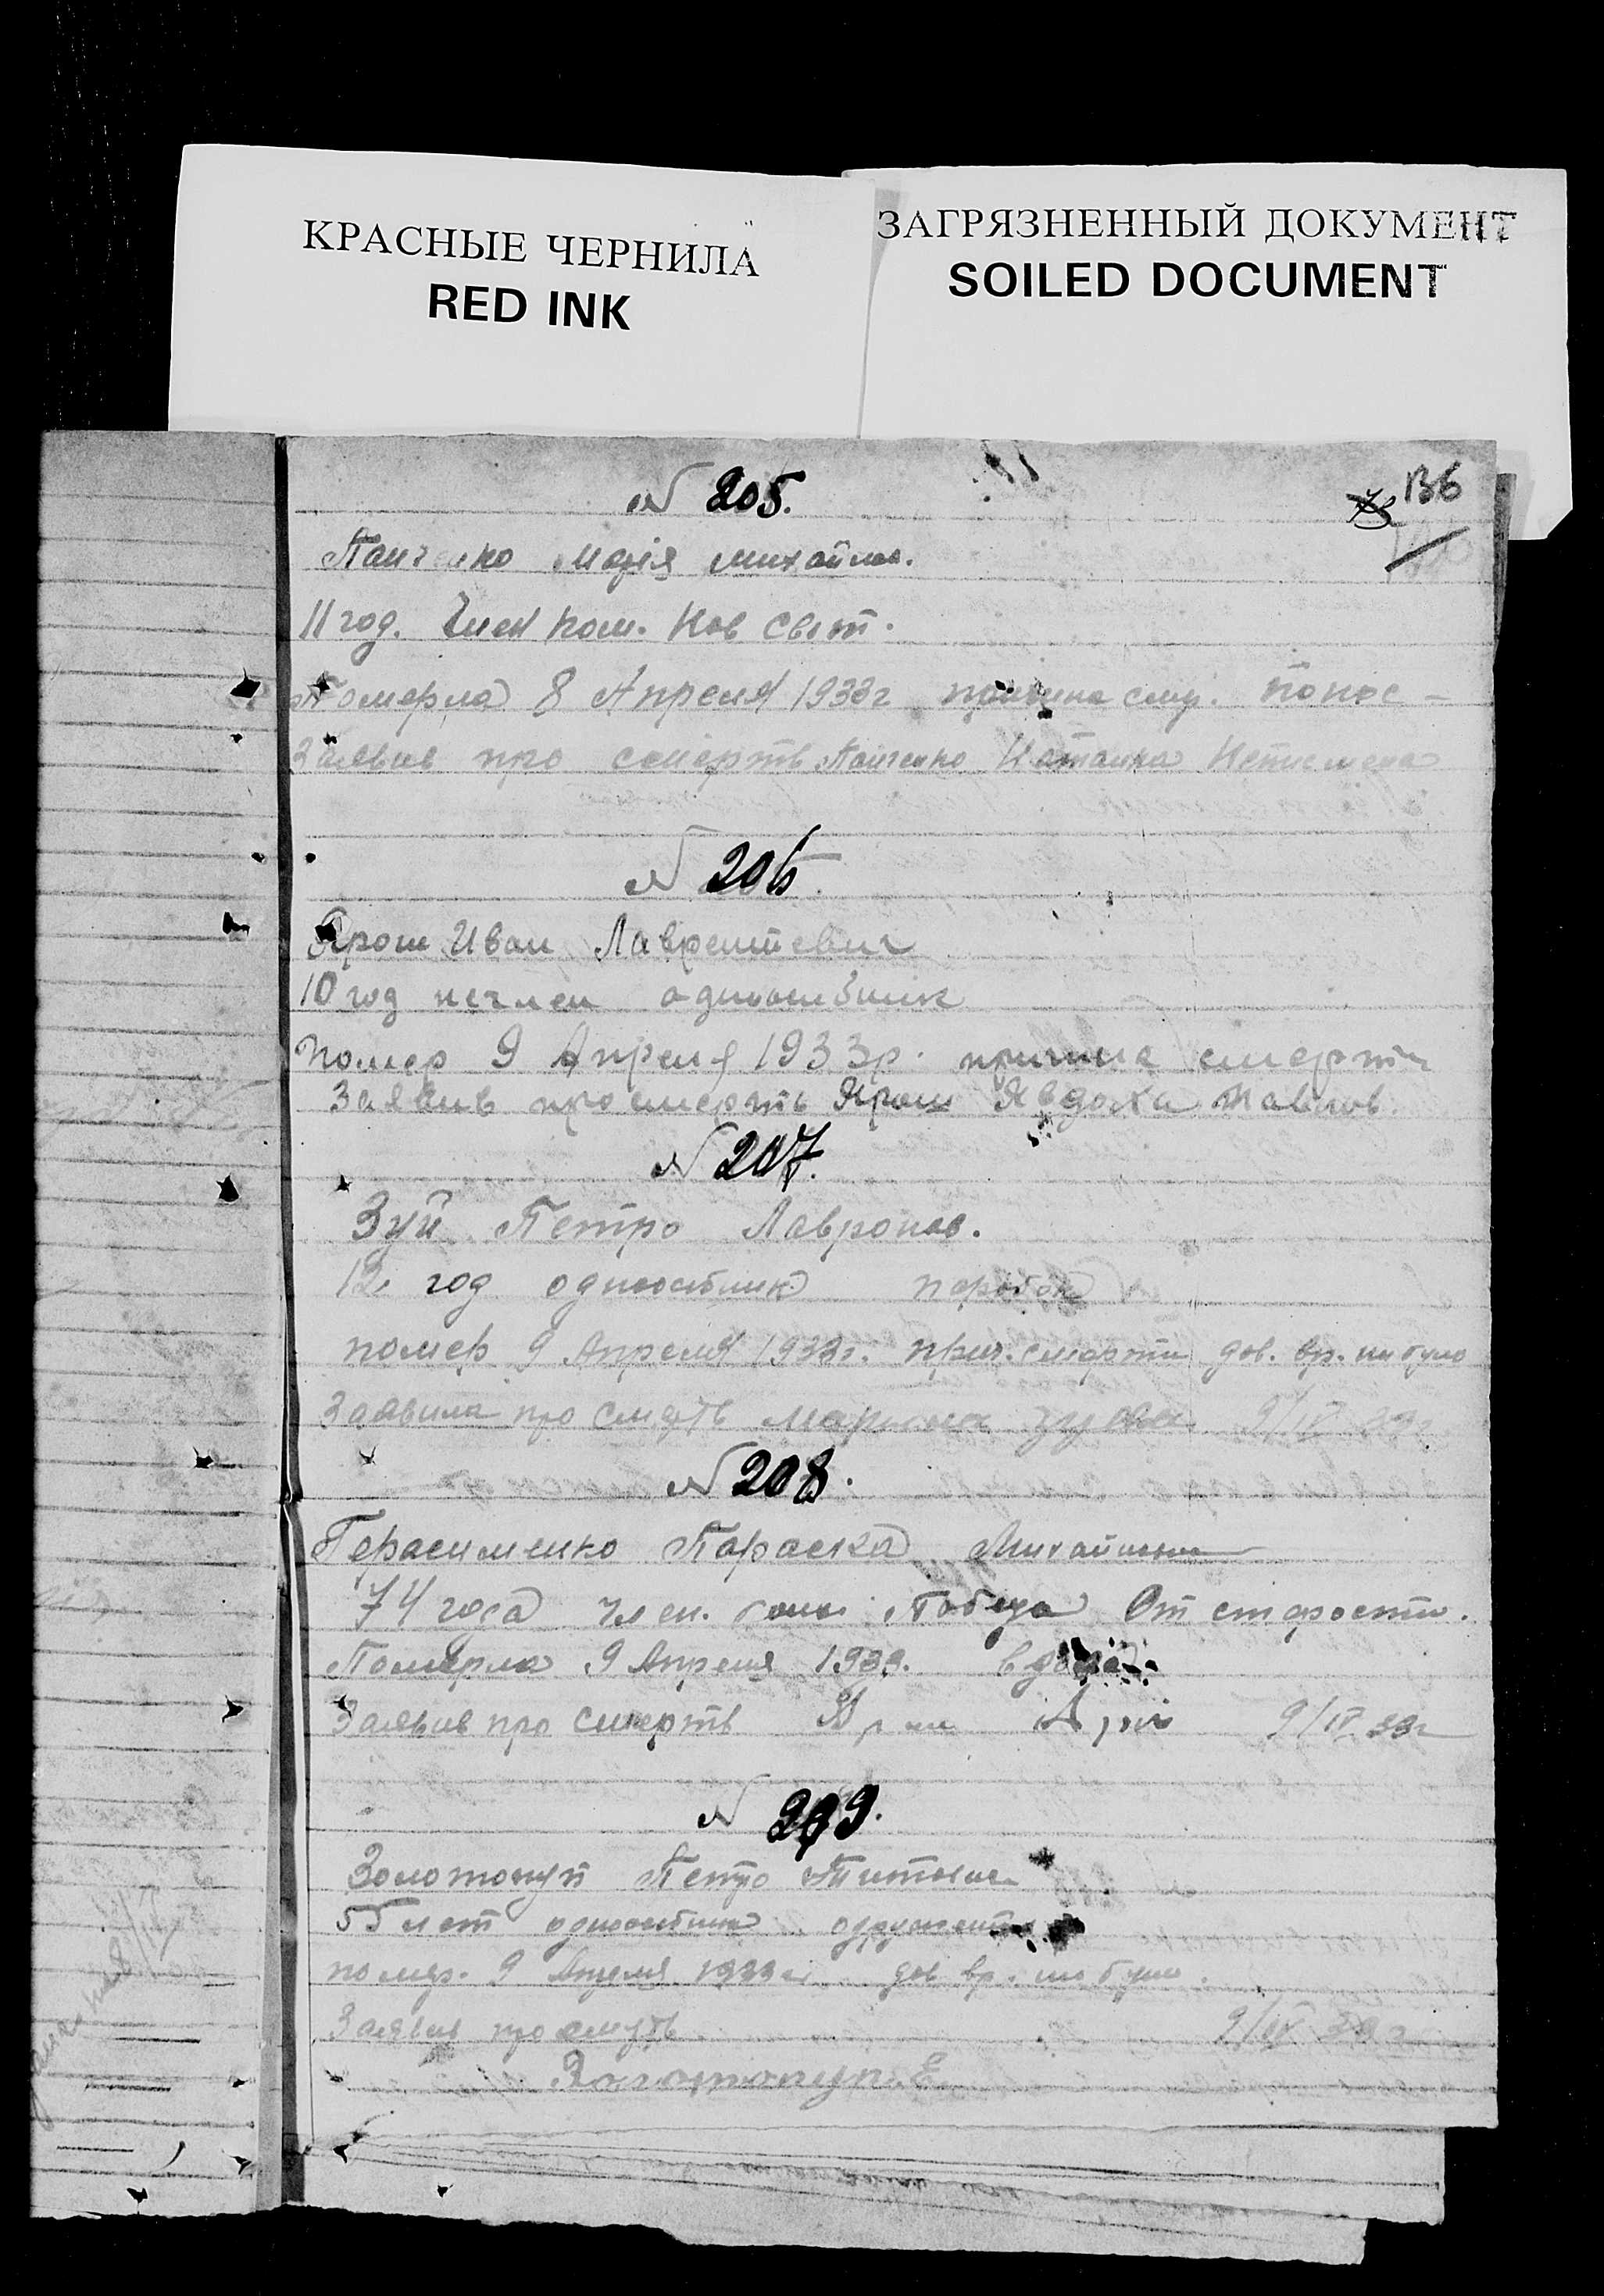 КРАСНЫЕ ЧЕРНИЛА
RED INK
ЗАГРЯЗНЕННЫЙ ДОКУМЕНТ
SOILED DOCUMENT
136
N 205.
Панченко Марія Михайлов.
11 год. Член ком. Нов Свет.
Померла 8 Апреля 1933г причина смер. понос -
Заявив про смерть Панченко
N 206
Ярош Иван Лаврентевич
10 год нечлен одноосибник
Помер 9 Апреля 1933р. причина смерти
Заявив про смерть Ярош Явдоха Павлов.
N 207.
Зуй Петро Лавронов.
12 год одноосібник паробок
помер 9 Апреля 1933г. прич. смерти дов. вр. ни було
Заявила про смерть Зуева 9/IV 33г
N 208.
Герасименко Параска Михайловна
74 года член. Победа От старости.
Померла 9 Апреля 1933. вдова
Заявив про смерть 9/IV 33г
N 209.
Золотопуп Петро Титович
55 лет одноосібник одружений
помер. 9 Апреля 1933г. дов вр. ни було.
Заявив про смерть 9/IV 33г
Золотопуп Е